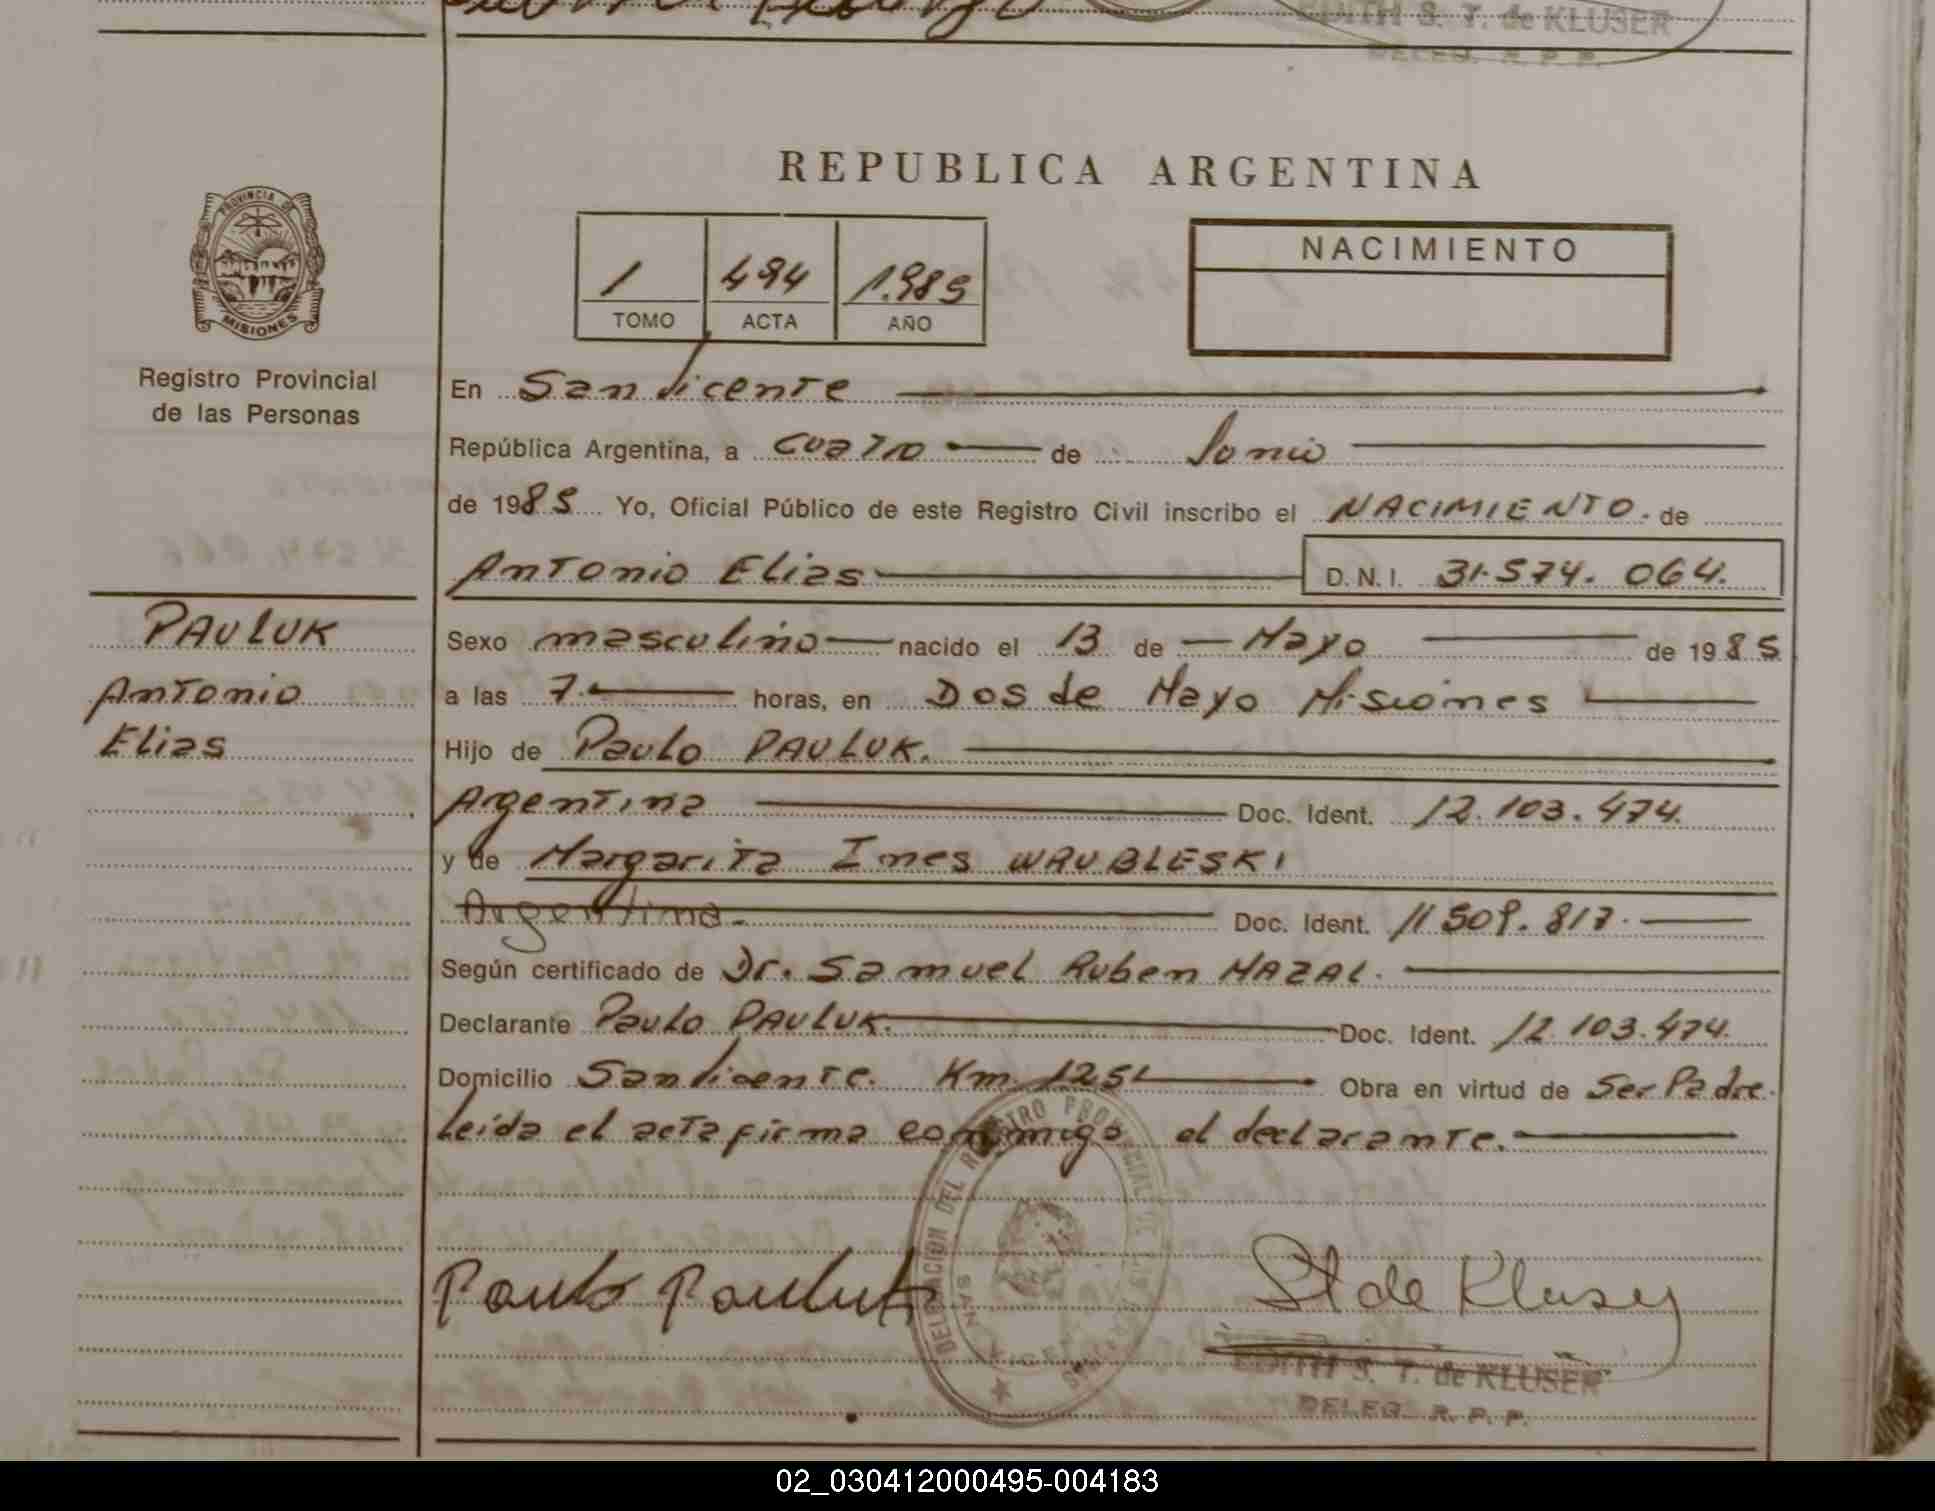 EDITH S. T. de KLUSER
DELEG. R. P. P.
REPUBLICA ARGENTINA
PROVINCIA DE
MISIONES
Registro Provincial
de las Personas
1 494 1.985
TOMO ACTA AÑO
NACIMIENTO
En San Vicente
República Argentina, a cuatro de Junio
de 1985 Yo, Oficial Público de este Registro Civil inscribo el NACIMIENTO. de
Antonio Elias D. N. I. 31.574. 064.
PAULUK
Antonio
Elias
Sexo masculino nacido el 13 de Mayo de 1985
a las 7. horas, en Dos de Mayo Misiones
Hijo de Paulo PAULUK.
Argentina Doc. Ident. 12.103.474.
y de Margarita Ines WAUBLESKI
Argentina. Doc. Ident. 11 509. 817.
Según certificado de Dr. Samuel Ruben MAZAL.
Declarante Paulo PAULUK. Doc. Ident. 12.103.474.
Domicilio San Vicente. Km 1251 Obra en virtud de Ser Padre.
Leída el acta firma conmigo el declarante.
DELEGACION DEL REGISTRO PROVINCIAL DE LAS PERSONAS
SAN VICENTE
Paulo Pauluk
St de Kluser
EDITH S. T. de KLUSER
DELEG. R. P. P.
02_030412000495-004183